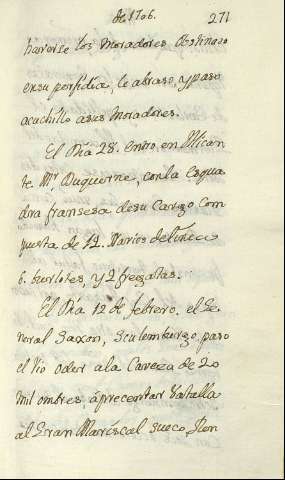 de 1706. 271
los Moradores Obstinado
en su perfidia, le abraso, y paso
acuchillo a sus Moradores.
El Dia 28. entro, en Alican
te Mr. Duquerne, con la Esqua
dra fransesa de su Cargo Com
puesta de 12. Navios de linea
6. burlotes, y 2 fregatas.
El Dia 12 de febrero, el Ge
neral Saxon, Sculemburgo, paso
el rio oder a la Caveza de 20
mil ombres, á precentar vatalla
al Gran Mariscal sueco,